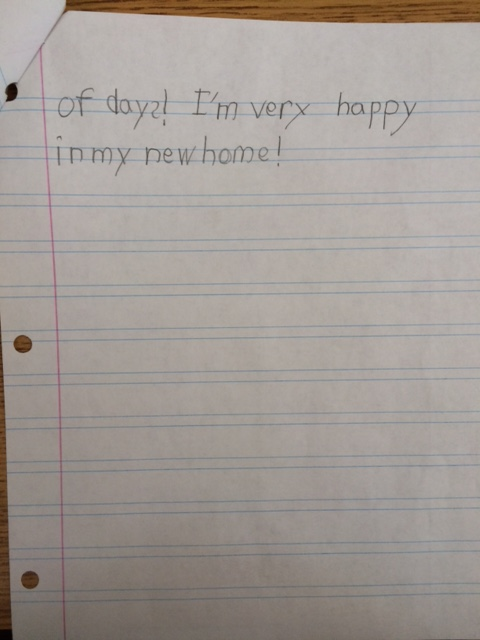 of days! I'm very happy
in my new home!